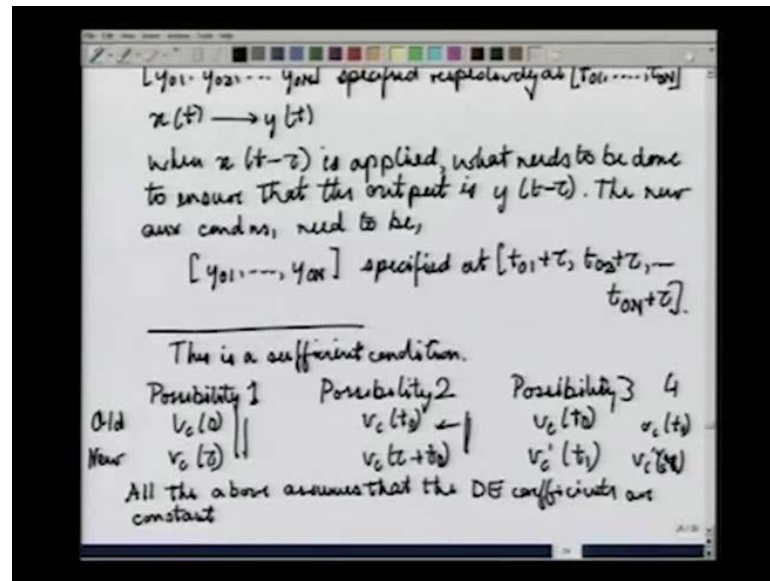 [y01, y02, ... y0N] specified respectively at [t01, ..., t0N]
x(t) ⟶ y(t)
when x(t-τ) is applied, what needs to be done
to ensure that the output is y(t-τ). The new
aux condns, need to be,
[y01, ..., y0N] specified at [t01+τ, t02+τ, ...
t0N+τ].
This is a sufficient condition.
Possibility 1 Possibility 2 Possibility 3 4
Old vc(0) vc(t0) ← vc(t0) vc(t0)
New vc(τ) vc(τ+t0) vc'(t1)
All the above assumes that the DE coefficients are
constant